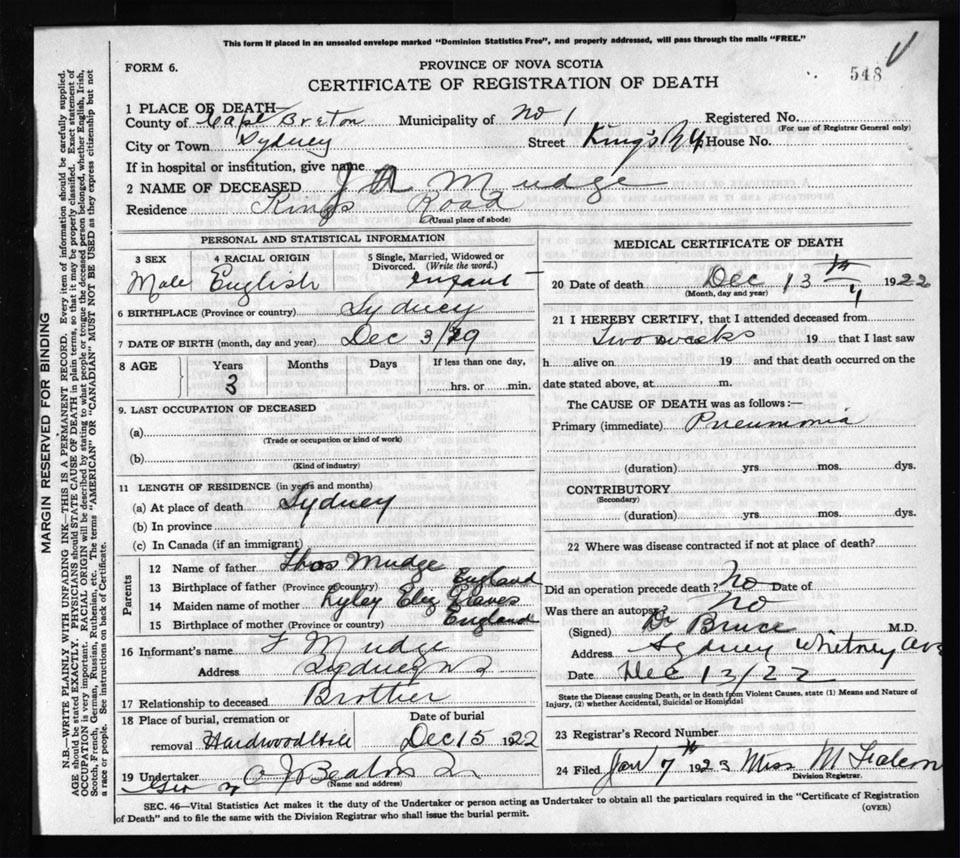 This form if placed in an unsealed envelope marked "Dominion Statistics Free", and properly addressed, will pass through the mails "FREE."
FORM 6.
PROVINCE OF NOVA SCOTIA
CERTIFICATE OF REGISTRATION OF DEATH
548
1 PLACE OF DEATH
County of Cape Breton Municipality of No 1 Registered No.
(For use of Registrar General only)
City or Town Sydney Street King's House No.
If in hospital or institution, give name
2 NAME OF DECEASED J A Mudge
Residence Kings Road
(Usual place of abode)
PERSONAL AND STATISTICAL INFORMATION
3 SEX 4 RACIAL ORIGIN 5 Single, Married, Widowed or Divorced. (Write the word.)
Male English infant
6 BIRTHPLACE (Province or country) Sydney
7 DATE OF BIRTH (month, day and year) Dec 3/19
8 AGE Years Months Days If less than one day,
3 hrs. or min.
9. LAST OCCUPATION OF DECEASED
(a)
(Trade or occupation or kind of work)
(b)
(Kind of industry)
11 LENGTH OF RESIDENCE (in years and months)
(a) At place of death Sydney
(b) In province
(c) In Canada (if an immigrant)
Parents
12 Name of father Thos Mudge
13 Birthplace of father (Province or country) England
14 Maiden name of mother Eliz
15 Birthplace of mother (Province or country) England
16 Informant's name F Mudge
Address Sydney N S
17 Relationship to deceased Brother
18 Place of burial, cremation or Date of burial
removal Hardwood Hill Dec 15 1922
19 Undertaker A J Beaton
(Name and address)
MEDICAL CERTIFICATE OF DEATH
20 Date of death Dec 13th 1922
(Month, day and year)
21 I HEREBY CERTIFY, that I attended deceased from
Two weeks 19 that I last saw
h alive on 19 and that death occurred on the
date stated above, at m.
The CAUSE OF DEATH was as follows:—
Primary (immediate) Pneumonia
(duration) yrs. mos. dys.
CONTRIBUTORY
(Secondary)
(duration) yrs. mos. dys.
22 Where was disease contracted if not at place of death?
Did an operation precede death? No Date of
Was there an autopsy? No
(Signed) Dr Bruce M.D.
Address Sydney Whitney Ave
Date Dec 13/22
State the Disease causing Death, or in death from Violent Causes, state (1) Means and Nature of
Injury, (2) whether Accidental, Suicidal or Homicidal
23 Registrar's Record Number
24 Filed Jan 7th 1923 Miss M
Division Registrar.
SEC. 46—Vital Statistics Act makes it the duty of the Undertaker or person acting as Undertaker to obtain all the particulars required in the "Certificate of Registration
of Death" and to file the same with the Division Registrar who shall issue the burial permit.
(OVER)
MARGIN RESERVED FOR BINDING
N.B.—WRITE PLAINLY WITH UNFADING INK—THIS IS A PERMANENT RECORD. Every item of information should be carefully supplied.
AGE should be stated EXACTLY. PHYSICIANS should STATE CAUSE OF DEATH in plain terms, so that it may be properly classified. Exact statement of
OCCUPATION is very important. RACIAL ORIGIN will be described by stating to what people or tongue the deceased person belonged, whether English, Irish,
Scotch, French, German, Russian, Ruthenian, etc. The terms "AMERICAN" OR "CANADIAN" MUST NOT BE USED as they express citizenship but not
a race or people. See instructions on back of Certificate.